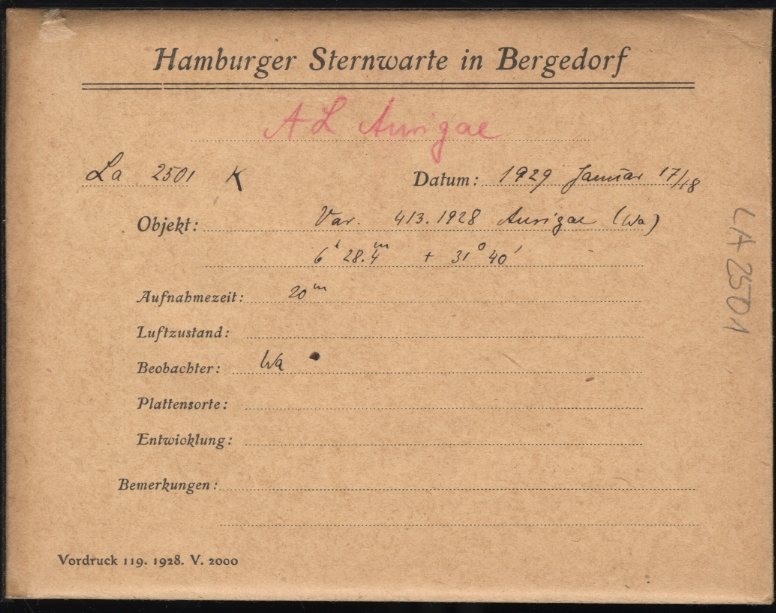 Hamburger Sternwarte in Bergedorf
AL Aurigae
La 2501 K Datum: 1929 Januar 17/18
Objekt: Var. 413.1928 Aurigae (Wa)
6h 28.4m + 31° 40'
Aufnahmezeit: 20m
Luftzustand:
Beobachter: Wa
Plattensorte:
Entwicklung:
Bemerkungen:
Vordruck 119. 1928. V. 2000
LA 2501